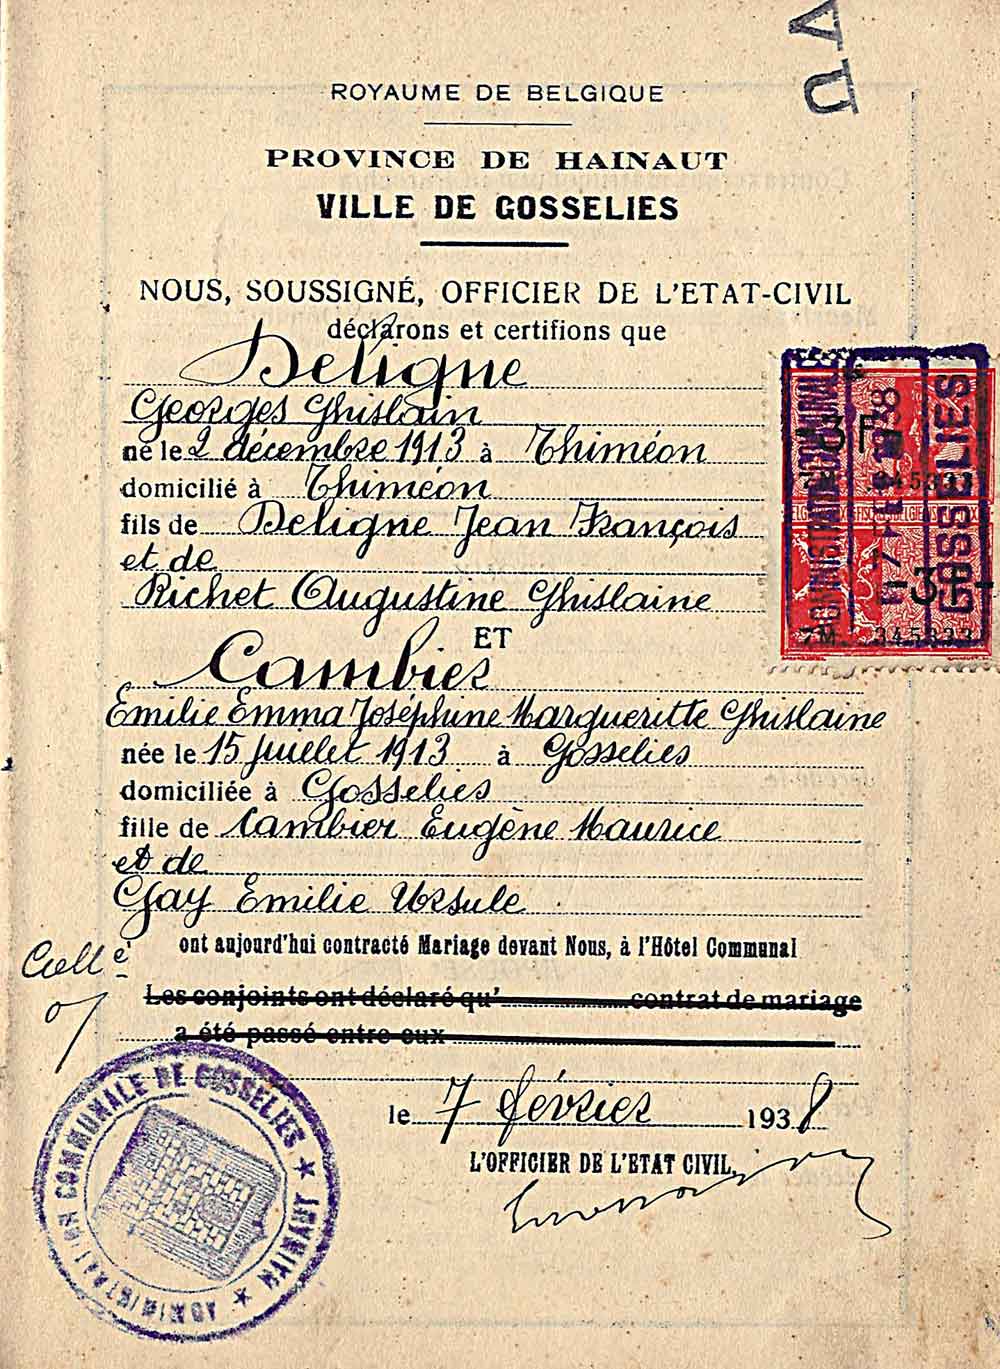 ROYAUME DE BELGIQUE
PROVINCE DE HAINAUT
VILLE DE GOSSELIES
NOUS, SOUSSIGNÉ, OFFICIER DE L'ETAT-CIVIL
déclarons et certifions que
Deligne
Georges Ghislain
né le 2 décembre 1913 à Thiméon
domicilié à Thiméon
fils de Deligne Jean François
et de
Richet Augustine Ghislaine
ET
Cambier
Emilie Emma Joséphine Margueritte Ghislaine
née le 15 juillet 1913 à Gosselies
domiciliée à Gosselies
fille de Cambier Eugène Maurice
et de
Gay Emilie Ursule
ont aujourd'hui contracté Mariage devant Nous, à l'Hôtel Communal
Les conjoints ont déclaré qu' contrat de mariage
a été passé entre eux
le 7 février 1938
L'OFFICIER DE L'ETAT CIVIL,
ADMINISTRATION COMMUNALE DE GOSSELIES ★ HAINAUT ★
GOSSELIES
3F
7M. 345333
-3F-
7M. 345333